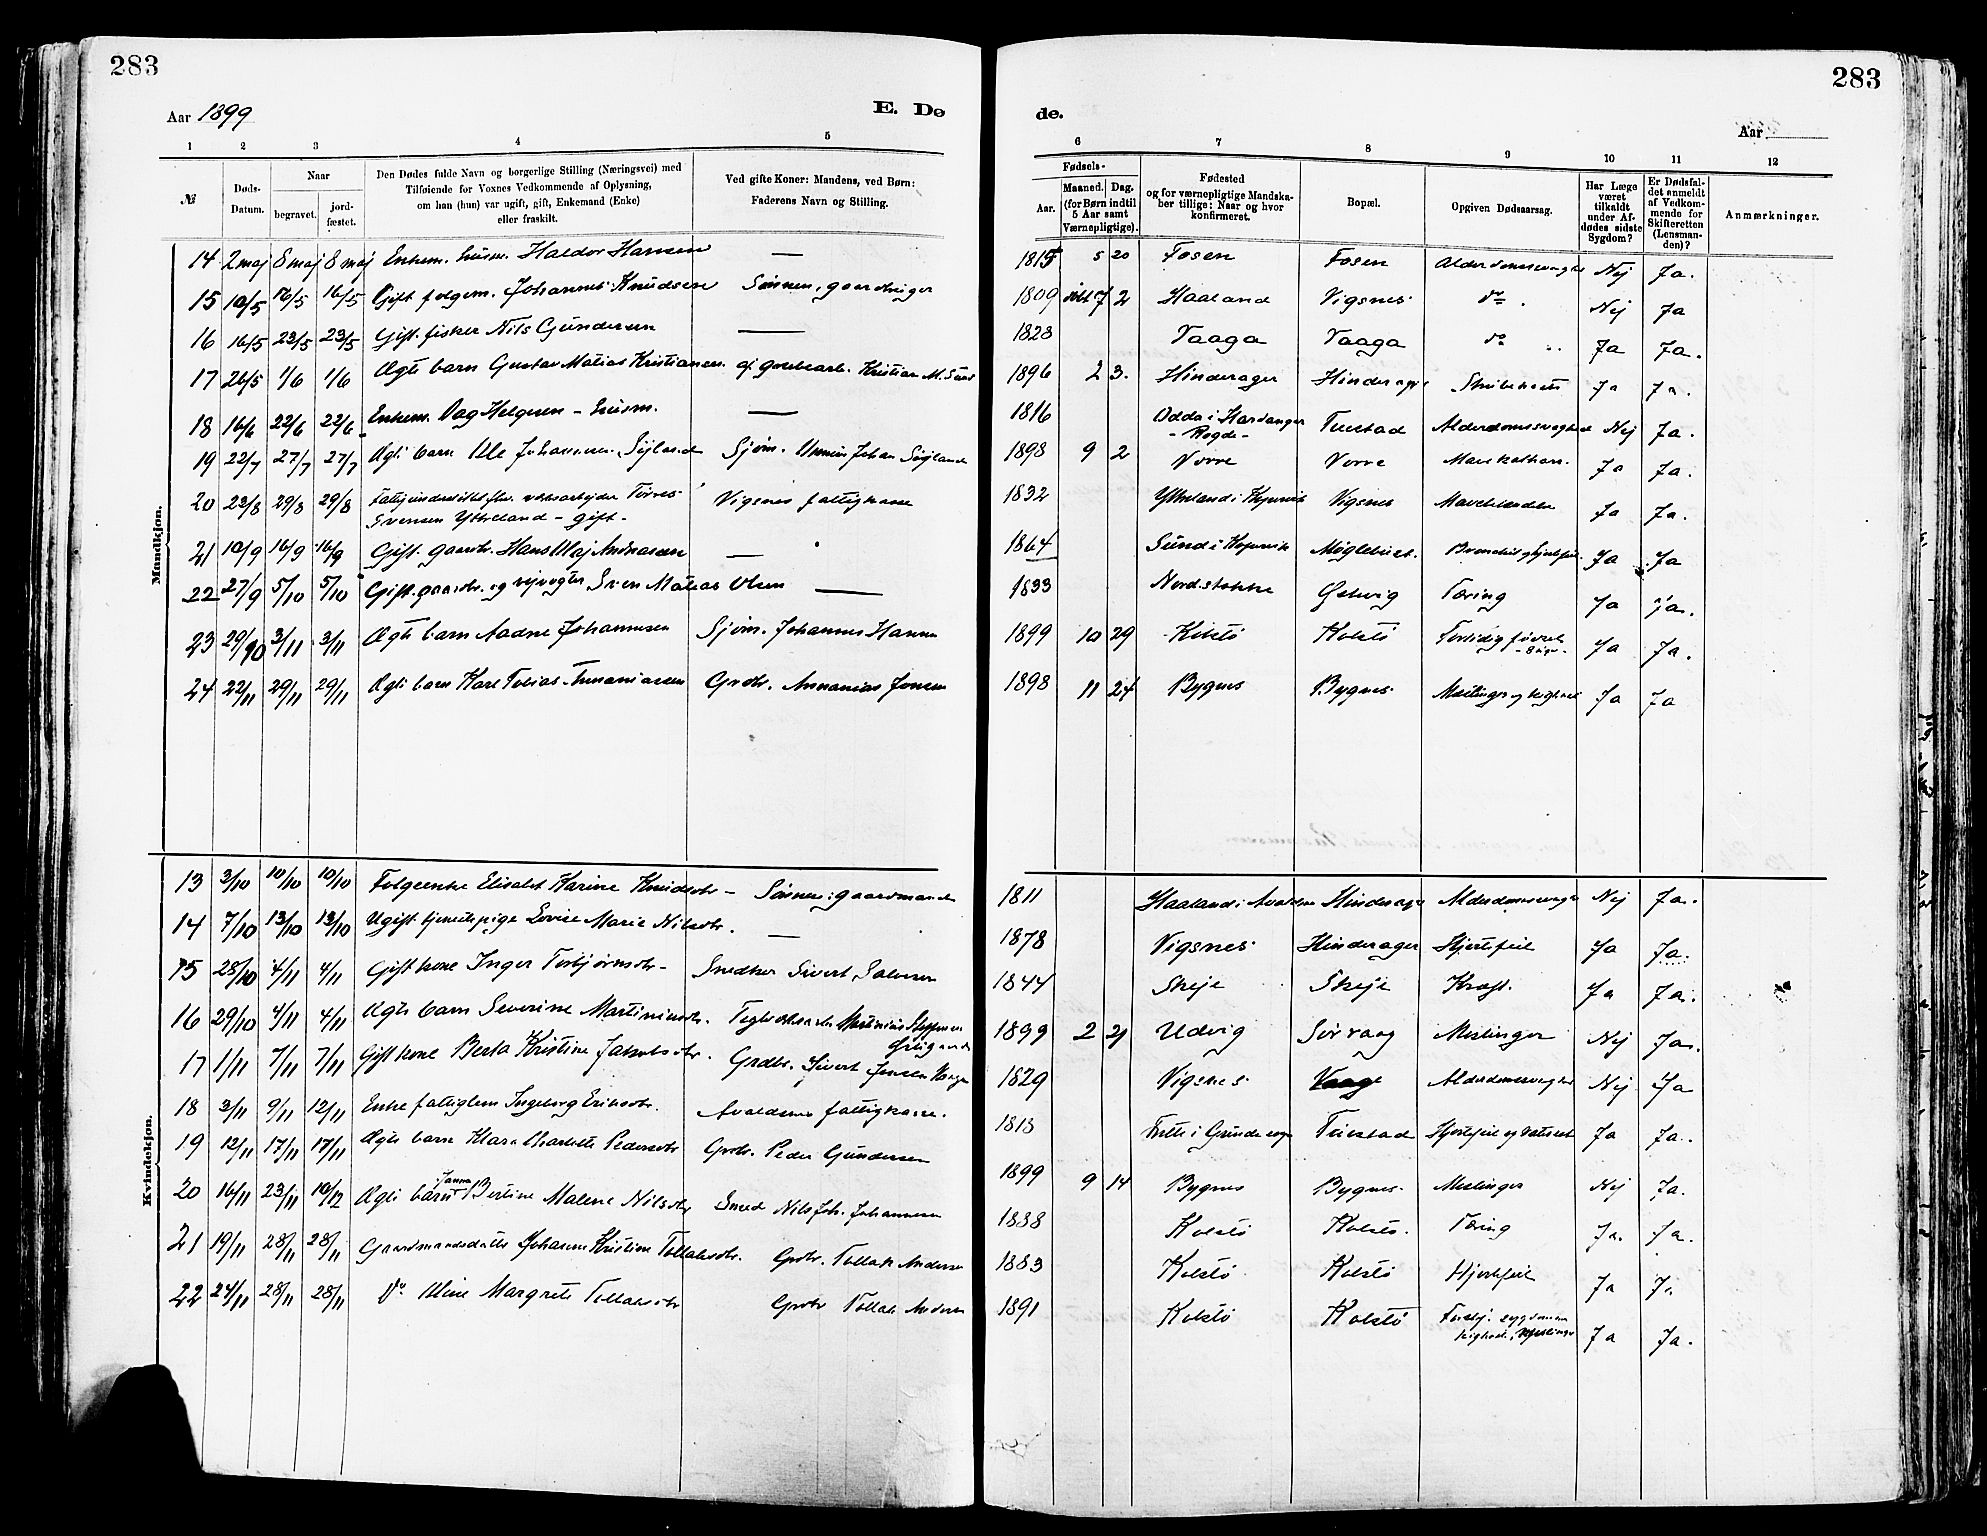 283
283
Aar 1899
E. Dø
de.
Aar
1 2 3 4 5
6 7 8 9 10 11 12
№
Døds-
Datum.
Naar
begravet.
jord-
fæstet.
Den Dødes fulde Navn og borgerlige Stilling (Næringsvei) med
Tilføiende for Voxnes Vedkommende af Oplysning,
om han (hun) var ugift, gift, Enkemand (Enke)
eller fraskilt.
Ved gifte Koner: Mandens, ved Børn:
Faderens Navn og Stilling.
Fødsels-
Aar.
Maaned. Dag.
(for Børn indtil
5 Aar samt
Værnepligtige).
Fødested
og for værnepligtige Mandska-
ber tillige: Naar og hvor
konfirmeret.
Bopæl.
Opgiven Dødsaarsag.
Har Læge
været
tilkaldt
under Af-
dødes sidste
Sygdom?
Er Dødsfal-
det anmeldt
af Vedkom-
mende for
Skifteretten
(Lensman-
den)?
Anmærkninger.
Mandkjøn.
14 2 maj 8 maj 8 maj Enkem. husm. Haldor Hansen — 1815 5 20 Fosen Fosen Alderdomssvaghed Nej Ja.
15 10/5 16/5 16/5 Gift folgem. Johannes Knudsen Sønnen, gaardbruger 1809 7 2 Haaland Vigsnes do Nej Ja
16 16/5 23/5 23/5 Gift fisker Nils Gundersen — 1823 Vaaga Vaaga do Ja Ja.
17 26/5 1/6 1/6 Ægte barn Gustav Matias Kristiansen Kristian M. 1896 2 3. Hinderager Hinderager Ja Ja.
18 16/6 22/6 22/6 Enkem. Dag Helgesen – husm. — 1816 Odda i Hardanger Tuestad Alderdomssvaghed Nej Ja.
19 22/7 27/7 27/7 Ægte barn Ole Johannessen Søyland Sjøm. Johan Søyland 1898 9 2 Vorre Vorre Mavekatharr. Ja Ja.
20 23/8 29/8 29/8 Tørres Vigsnes fattigkasse 1832 Vigsnes Ja Ja.
Svensen Ytreland – gift.
21 10/9 16/9 16/9 Gift gaardbr. Hans Olaj Andreassen — 1864 Sund i Kopervik Ja Ja
22 27/9 5/10 5/10 Gift gaardbr. og vejvogter Sven Matias Olsen — 1833 Nordstokke Tæring Ja Ja.
23 29/10 3/11 3/11 Ægte barn Aadne Johannesen Sjøm. Johannes Hansen 1899 10 29 Kolstø Kolstø Fortidlig født Ja Ja.
24 22/11 29/11 29/11 Ægte barn Karl Tobias Annaniassen Grdbr. Annanias Jonsen 1898 11 24 Bygnes Bygnes Meslinger og kighoste Ja Ja
Kvindekjøn.
13 3/10 10/10 10/10 Folgeenke Elisabet Karine Knudsdtr – Sønnen: gaardmand 1811 Haaland i Avaldsnes Hinderager Alderdomssvaghed Nej Ja.
14 7/10 13/10 13/10 Ugift tjenestepige Lovise Marie Nilsdtr. — 1878 Vigsnes Hinderager Hjertefeil Ja Ja.
15 28/10 4/11 4/11 Gift kone Inger Torbjørnsdtr – Snedker Sivert Salvesen 1844 Skeje Skeje Kræft. Ja Ja.
16 29/10 4/11 4/11 Ægte barn Severine Martinusdtr. Martinius Steffensen 1899 2 21 Udvig Sørvaag Meslinger Nej Ja.
17 1/11 7/11 7/11 Gift kone Berta Kristine Jakobsdtr. Grdbr. Sivert Jonsen Vaage 1829 Vigsnes Vaage Alderdomssvaghed Nej Ja
18 3/11 9/11 12/11 Enke fattiglem Ingeborg Eriksdtr. Avaldsnes fattigkasse. 1813 Tuestad Hjertefeil og vatersot Ja Ja.
19 12/11 17/11 17/11 Ægte barn Klara Charlotte Pedersdtr Grdbr. Peder Gundersen 1899 9 14 Bygnes Bygnes. Meslinger Nej Ja.
20 16/11 23/11 10/12 Ægte barn Janna Bertine Malene Nilsdtr Smed Nils Joh. Johannesen 1888 Kolstø Kolstø. Tæring Ja. Ja.
21 19/11 28/11 28/11 Gaardmandsdatter Johanne Kristine Tollaksdtr. Grdbr. Tollak Andersen 1883 Kolstø Kolstø Hjertefeil Ja Ja
22 24/11 28/11 28/11 Do Oline Margrete Tollaksdtr Grdbr Tollak Andersen 1891 Kolstø Kolstø kighoste, Meslinger Ja Ja.